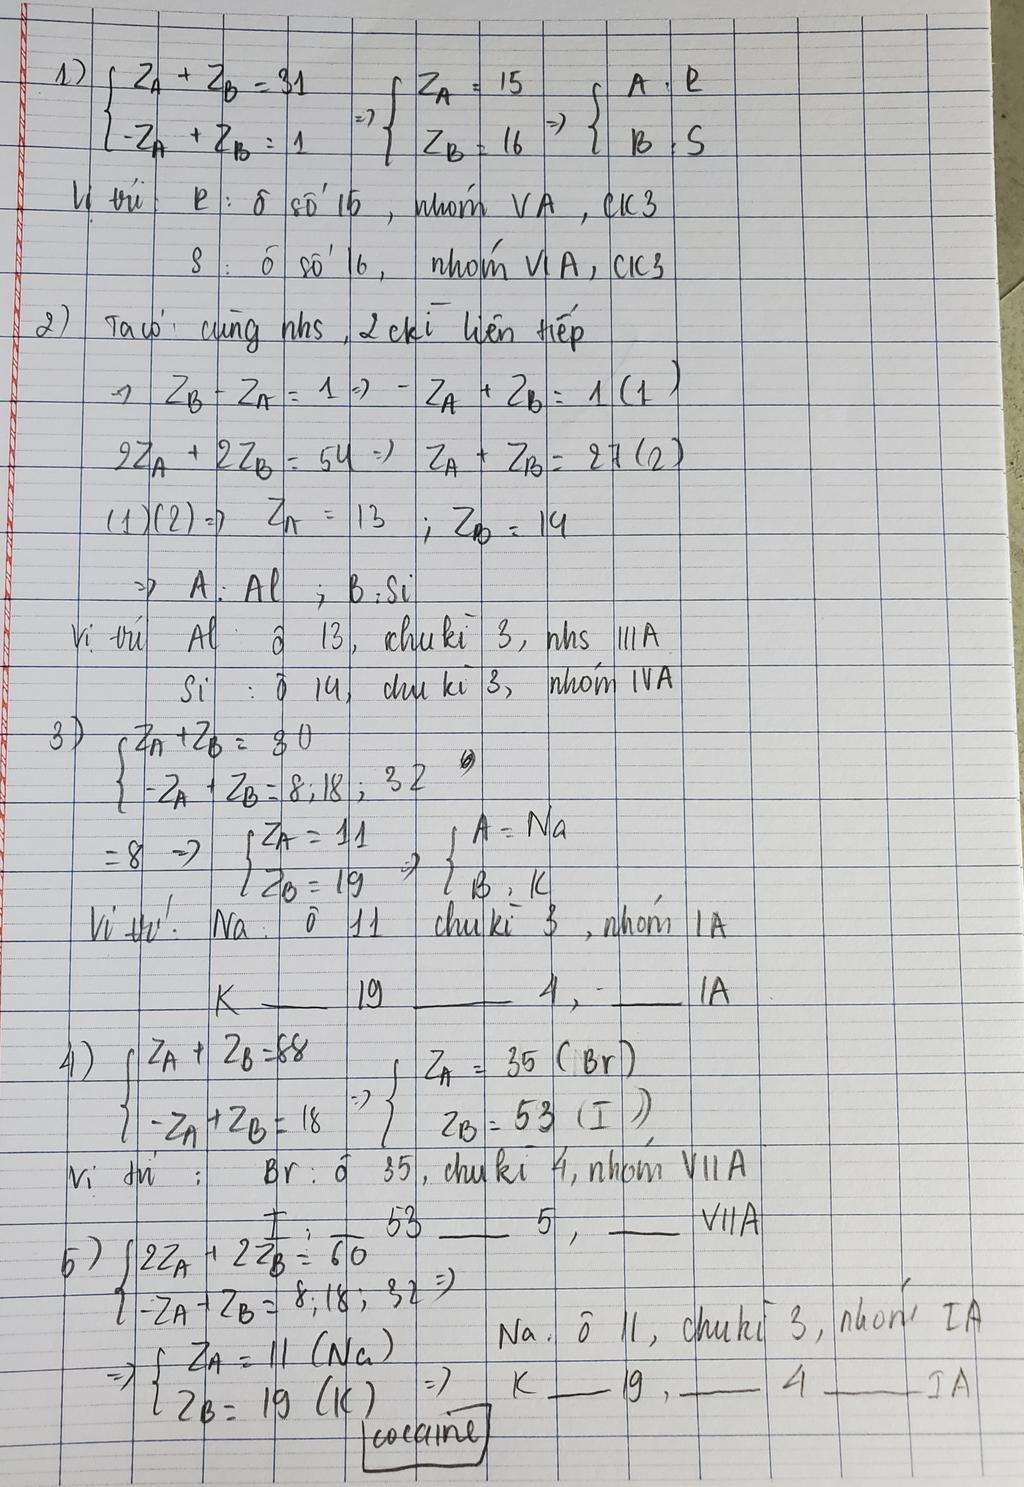 1) { Z_A + Z_B = 31 => { Z_A = 15 => { A : P
{ -Z_A + Z_B = 1 { Z_B = 16 { B : S
Vị trí P : ô số 15, nhóm VA, CK3
S : ô số 16, nhóm VIA, CK3
2) Ta có: cùng nhs, 2 ckì liên tiếp
=> Z_B - Z_A = 1 => -Z_A + Z_B = 1 (1)
2Z_A + 2Z_B = 54 => Z_A + Z_B = 27 (2)
(1)(2) => Z_A = 13 ; Z_B = 14
=> A : Al ; B : Si
Vị trí Al : ô 13, chu kì 3, nhs IIIA
Si : ô 14, chu kì 3, nhóm IVA
3) { Z_A + Z_B = 30
{ -Z_A + Z_B = 8 ; 18 ; 32
= 8 => { Z_A = 11 => { A = Na
{ Z_B = 19 { B : K
Vị trí : Na : ô 11 chu kì 3, nhóm IA
K ___ 19 ___ 4, ___ IA
4) { Z_A + Z_B = 88 => { Z_A = 35 (Br)
{ -Z_A + Z_B = 18 { Z_B = 53 (I)
Vị trí : Br : ô 35, chu kì 4, nhóm VIIA
I : _ 53 ___ 5, ___ VIIA
5) { 2Z_A + 2Z_B = 60
{ -Z_A + Z_B = 8 ; 18 ; 32 =>
=> { Z_A = 11 (Na) => Na : ô 11, chu kì 3, nhóm IA
{ Z_B = 19 (K) K ___ 19, ___ 4 ___ IA
cocaine